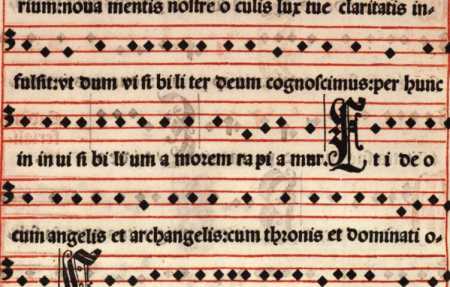 rium:noua mentis noſtre o culis lux tue claritatis in-
fulſit:vt dum vi ſi bi li ter deum cognoſcimus:per hunc
in in ui ſi bi li um a morem ra pi a mur. E t i de o
cum angelis et archangelis:cum thronis et dominati o-